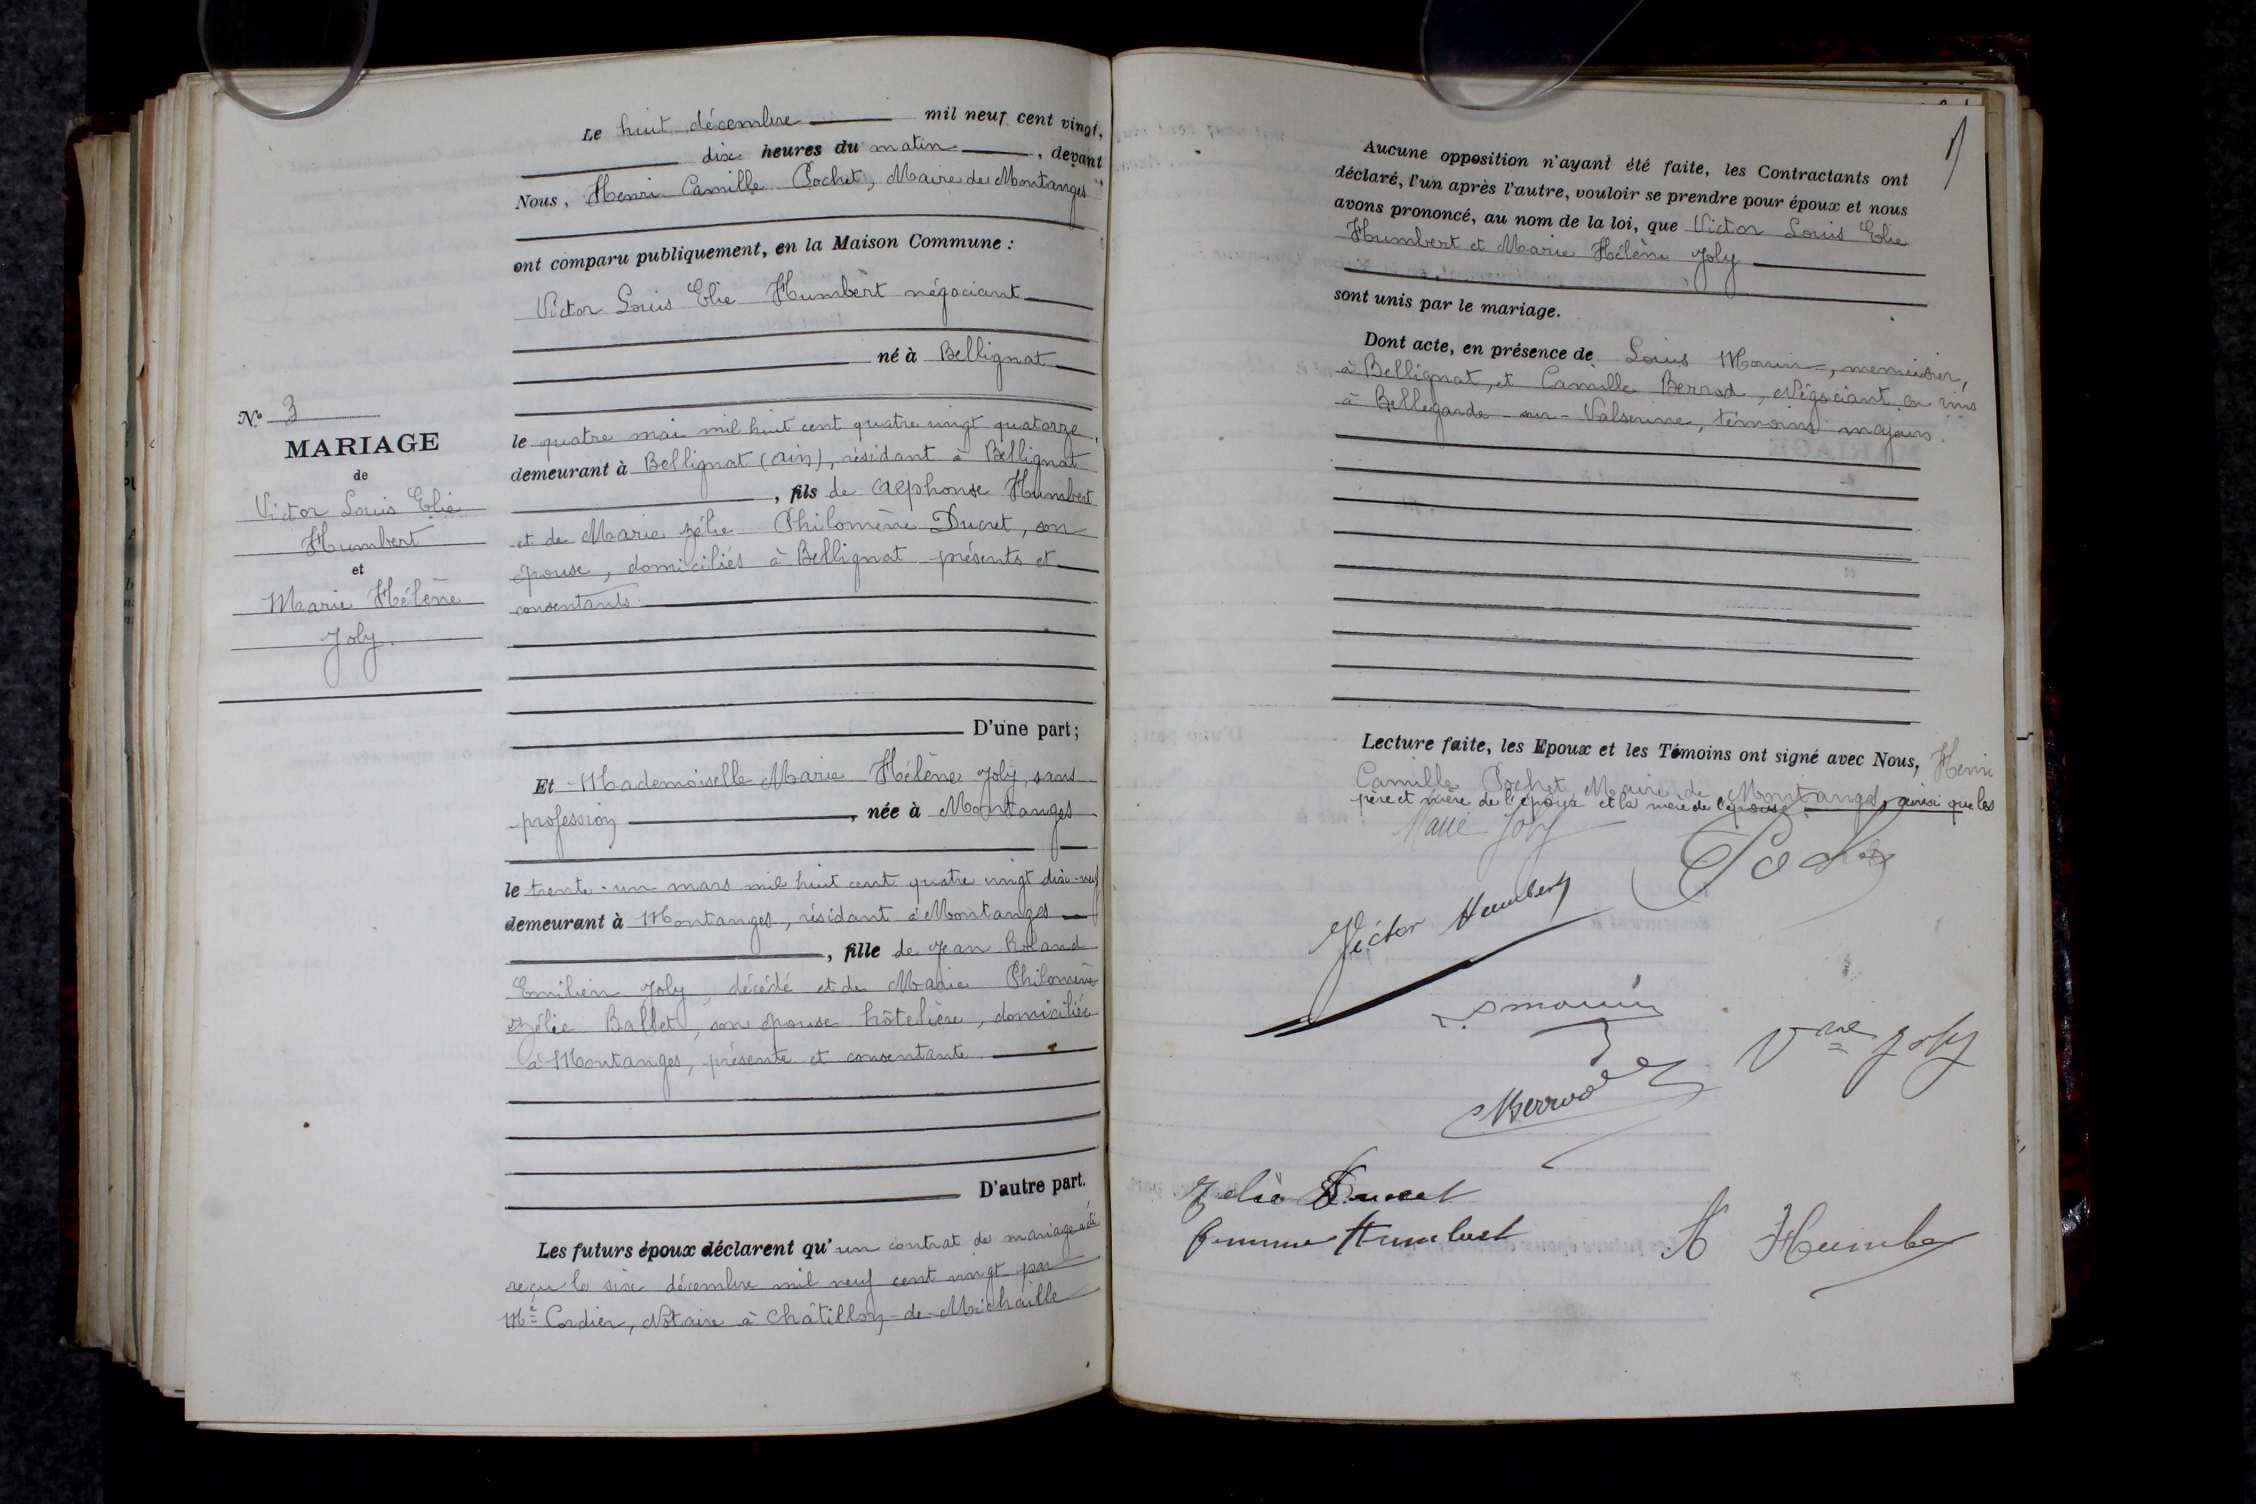 Le huit décembre mil neuf cent vingt,
dix heures du matin, devant
Nous, Henri Camille Pochet, Maire de Montanges
ont comparu publiquement, en la Maison Commune :
Victor Louis Elie Humbert négociant
né à Bellignat
le quatre mai mil huit cent quatre vingt quatorze,
demeurant à Bellignat (Ain), résidant à Bellignat
, fils de Alphonse Humbert
et de Marie Zélie Philomène Ducret, son
épouse, domiciliés à Bellignat présents et
consentants.
D'une part;
Et Mademoiselle Marie Hélène Joly, sans
profession, née à Montanges
le trente-un mars mil huit cent quatre vingt dix-neuf
demeurant à Montanges, résidant à Montanges
, fille de Jean Roland
Emilien Joly, décédé et de Marie Philomène
Zélie Ballet, son épouse hôtelière, domiciliée
à Montanges, présente et consentante
D'autre part.
Les futurs époux déclarent qu'un contrat de mariage a été
reçu le six décembre mil neuf cent vingt par
Me Cordier, Notaire à Châtillon-de-Michaille
N° 3
MARIAGE
de
Victor Louis Elie
Humbert
et
Marie Hélène
Joly.
Aucune opposition n'ayant été faite, les Contractants ont
déclaré, l'un après l'autre, vouloir se prendre pour époux et nous
avons prononcé, au nom de la loi, que Victor Louis Elie
Humbert et Marie Hélène Joly
sont unis par le mariage.
Dont acte, en présence de Louis Monin, menuisier,
à Bellignat, et Camille Berrod, Négociant en vins
à Bellegarde-sur-Valserine, témoins majeurs.
Lecture faite, les Epoux et les Témoins ont signé avec Nous, Henri
Camille Pochet Maire de Montanges, ainsi que les
père et mère de l'époux et la mère de l'épouse.
Marie Joly
Victor Humbert
L. Monin
Vve Joly
CBerrod
Zelie Ducret
femme Humbert
A Humbert